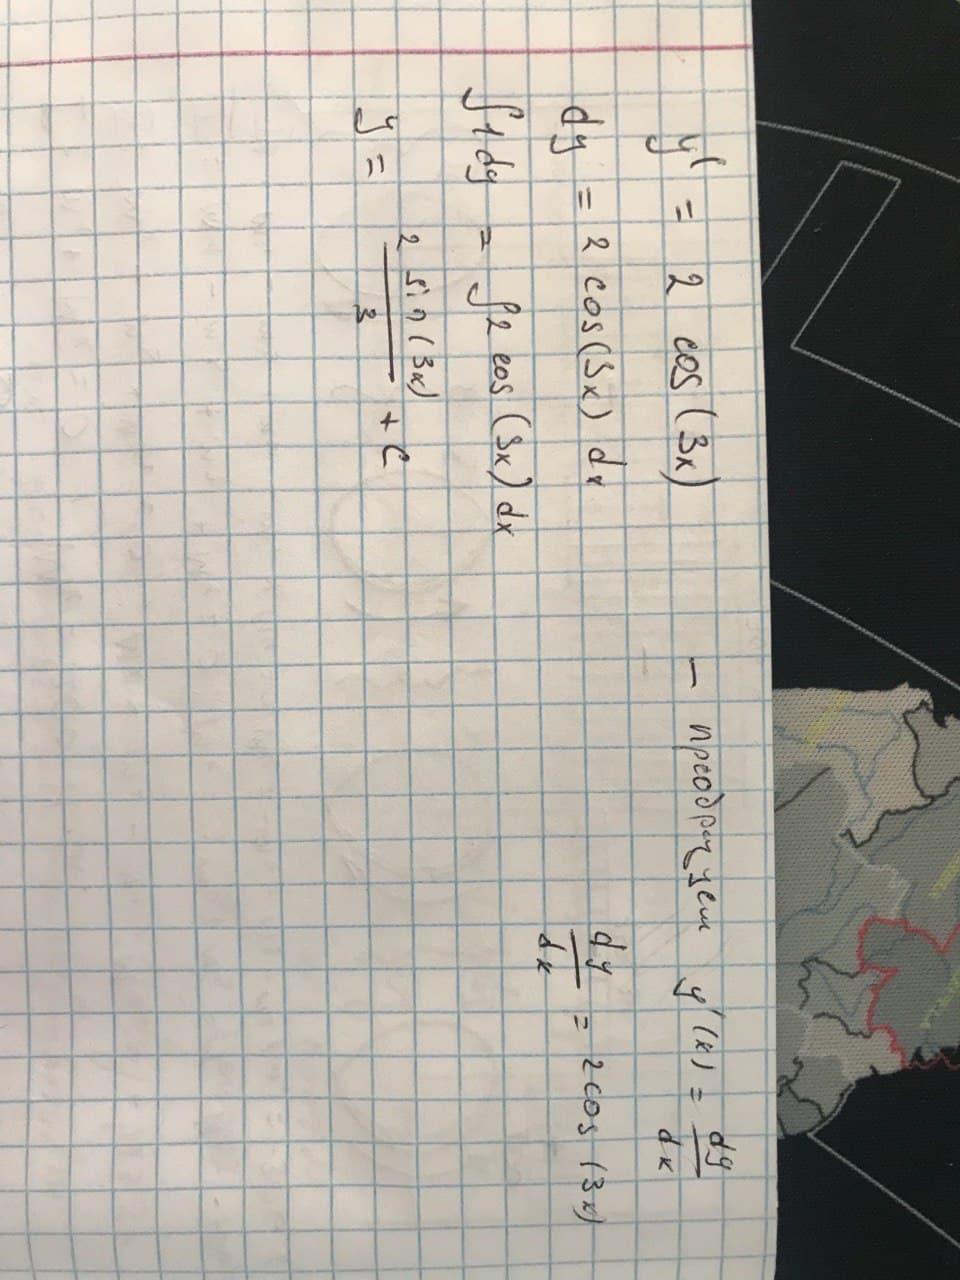 y' = 2 cos(3x) – преобразуем y'(x) = dy/dx
dy = 2 cos(3x) dx
dy/dx = 2cos(3x)
∫1dy = ∫2 cos(3x) dx
y = 2 sin(3x)/3 + C